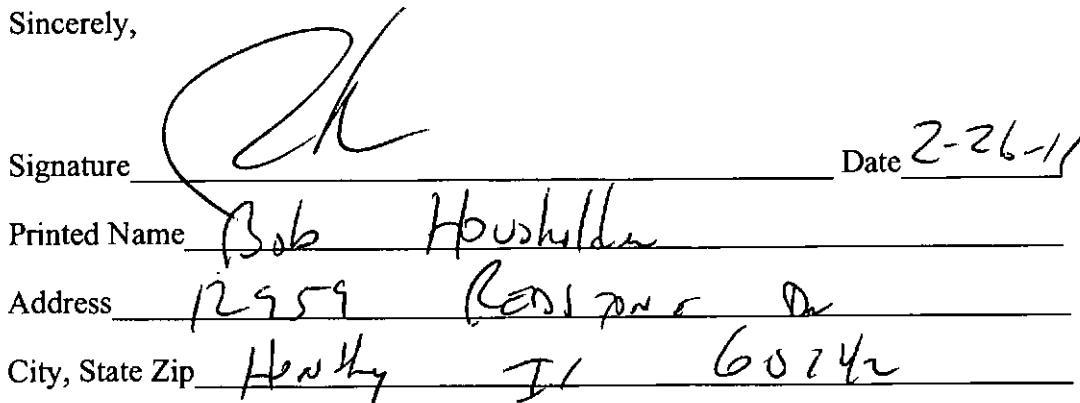 Sincerely,
Signature Date 2-26-11
Printed Name Bob Housholder
Address 12959 Redstone Dr
City, State Zip Il